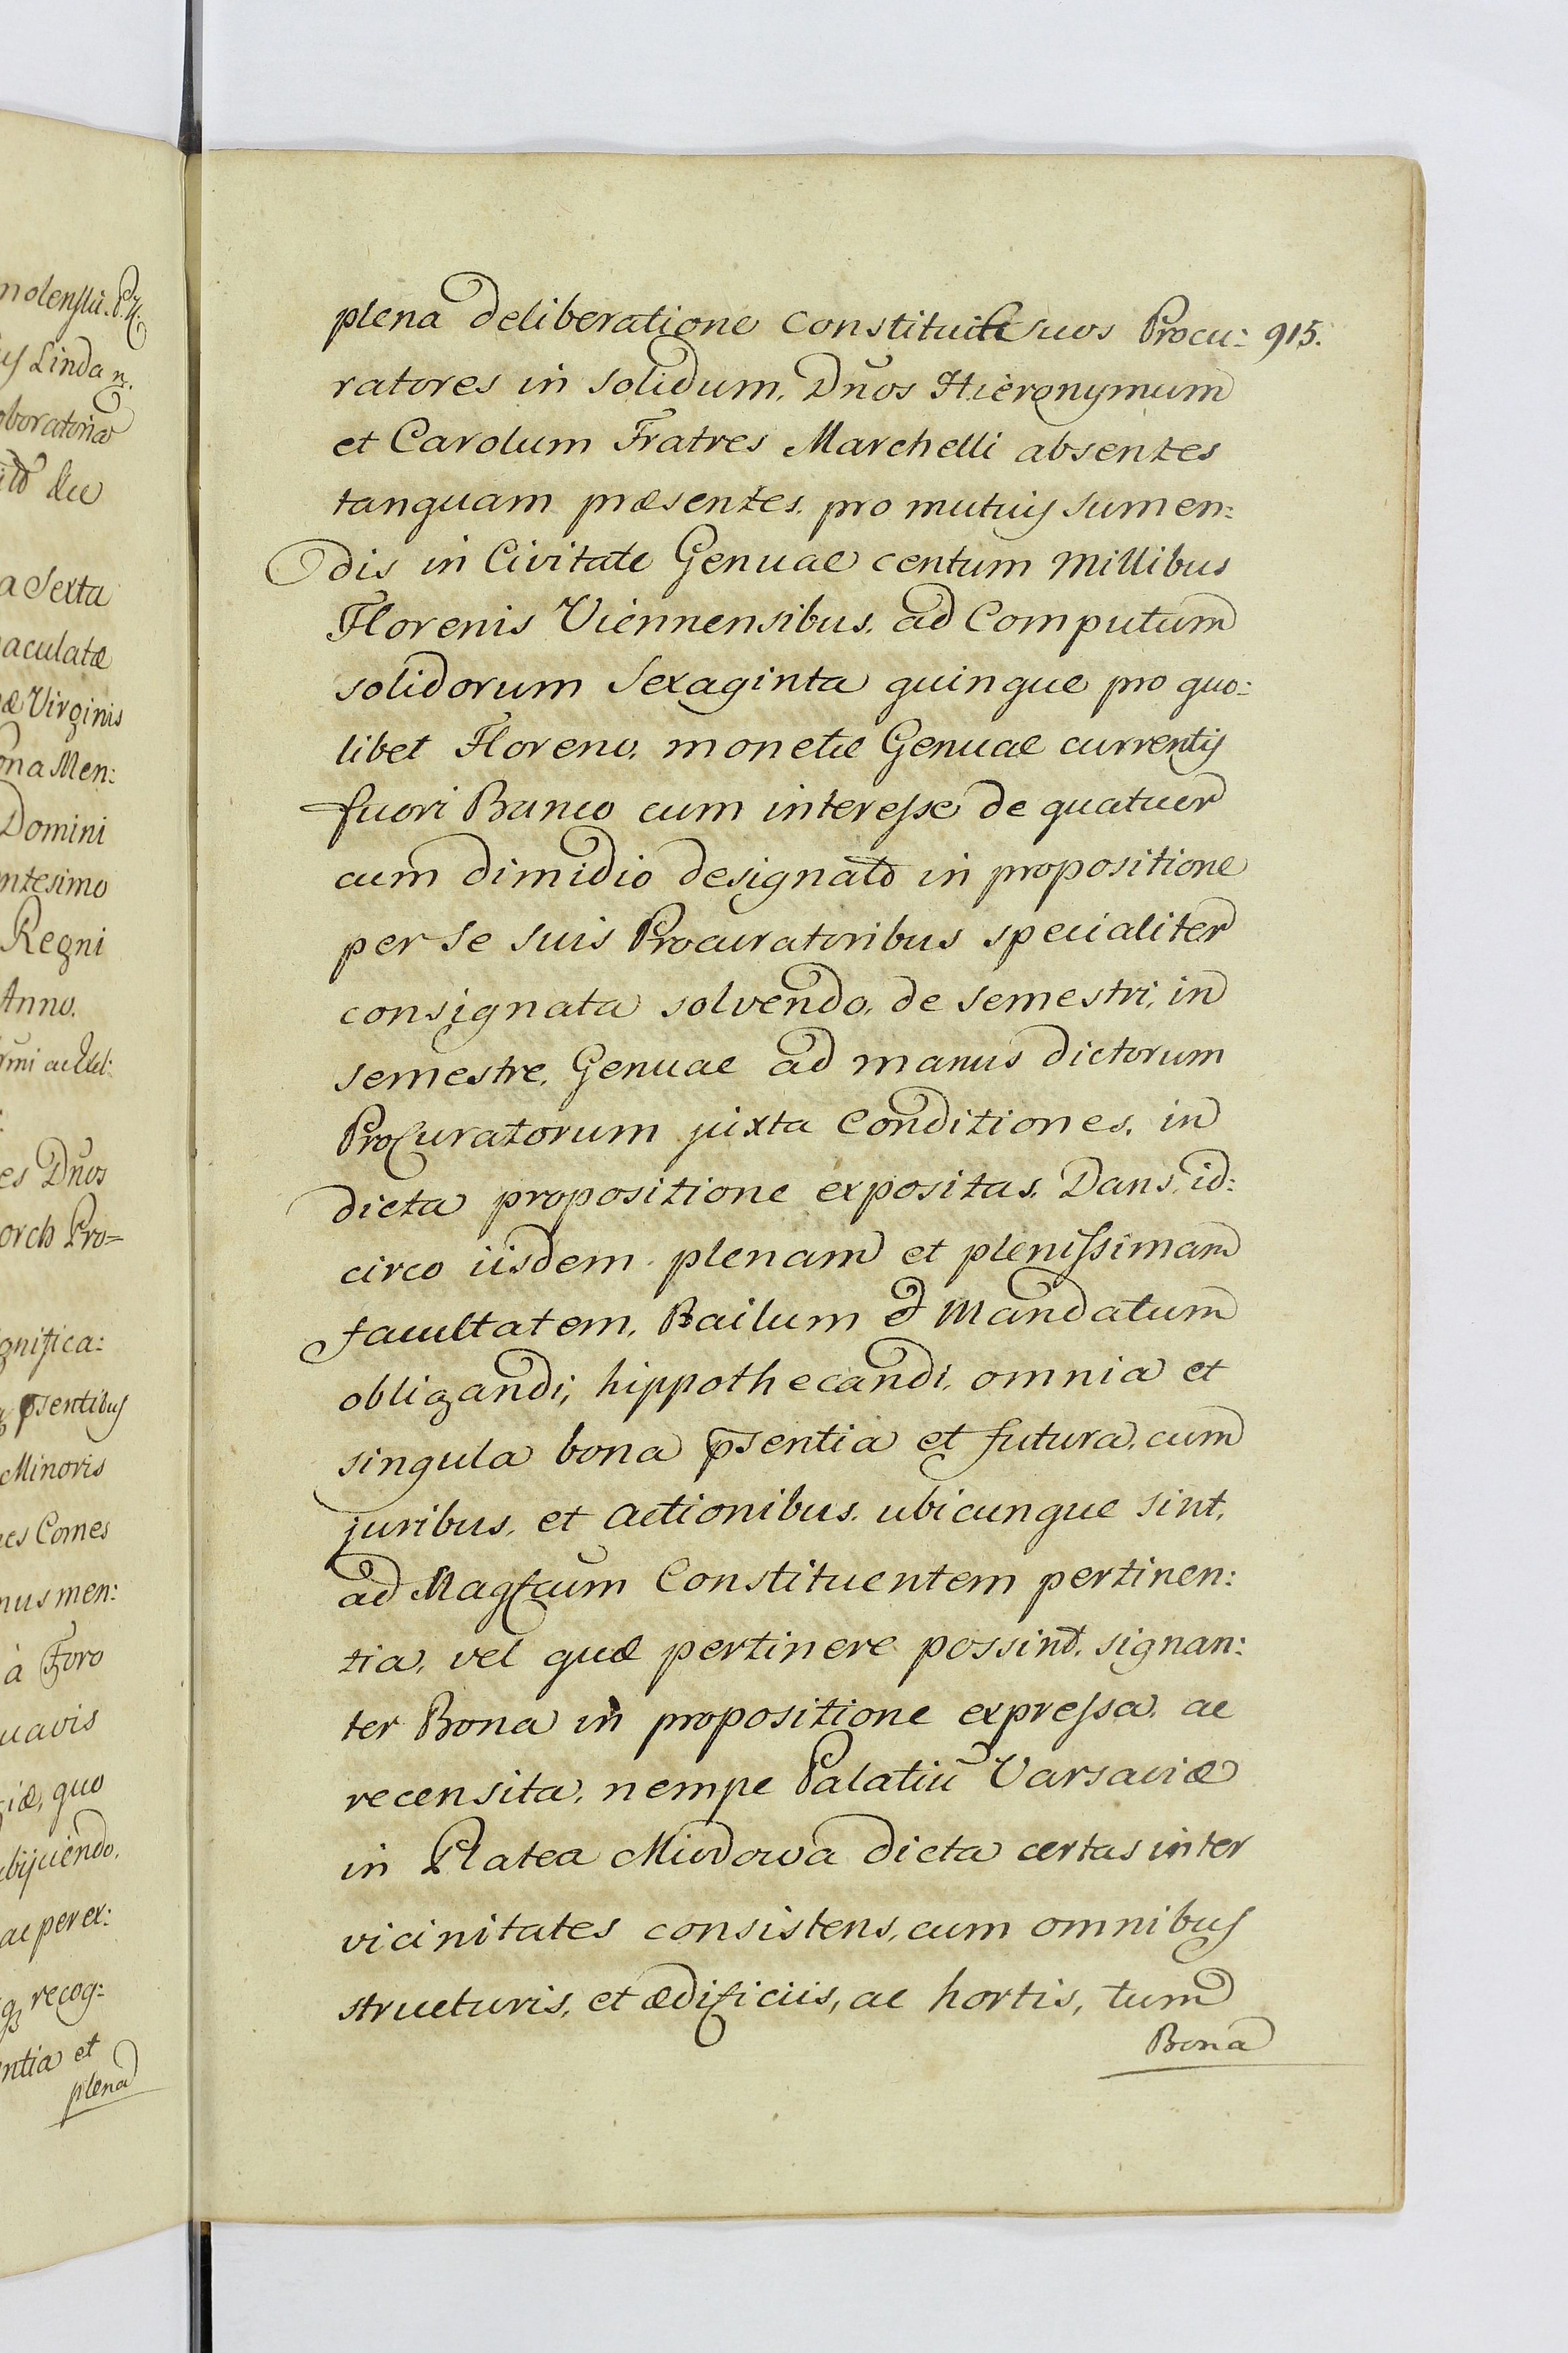 molenssu. P. N.
us Lindan.
oboratoria
a Sexta
aculatæ
æ Virginis
ona Men:
Domini
ntesimo
Regni
Anno.
es Dños
orch Pro=
gnifica:
psentibus
Minoris
es Comes
nus men:
à Foro
uavis
iæ, quo
ac per ex:
recog:
ntia et
plena
plena deliberatione constituit suos Procu: 915.
ratores in solidum, Dños Hieronymum
et Carolum Fratres Marchelli absentes
tanquam præsentes, pro mutuis sumen:
dis in Civitate Genuae centum Millibus
Florenis Viennensibus, ad Computum
solidorum Sexaginta quinque pro quo:
libet Floreno, monetæ Genuae currentis
fuori Banco cum interesse de quatuor
cum dimidio designato in propositione
per se suis Procuratoribus specialiter
consignata solvendo, de semestri, in
semestre, Genuae ad manus dictorum
Procuratorum juxta Conditiones, in
dicta propositione expositas. Dans, id:
circo iisdem plenam et plenissimam
facultatem, Bailum et Mandatum
obligandi, hippothecandi, omnia et
singula bona psentia et futura, cum
juribus, et actionibus, ubicunque sint,
ad Magfcum Constituentem pertinen:
tia, vel quæ pertinere possint, signan:
ter Bona in propositione expressa, ac
recensita, nempe Palatiū Varsaviæ
in Platea Miodowa dicta certas inter
vicinitates consistens, cum omnibus
structuris, et ædificiis, ac hortis, tum
Bona